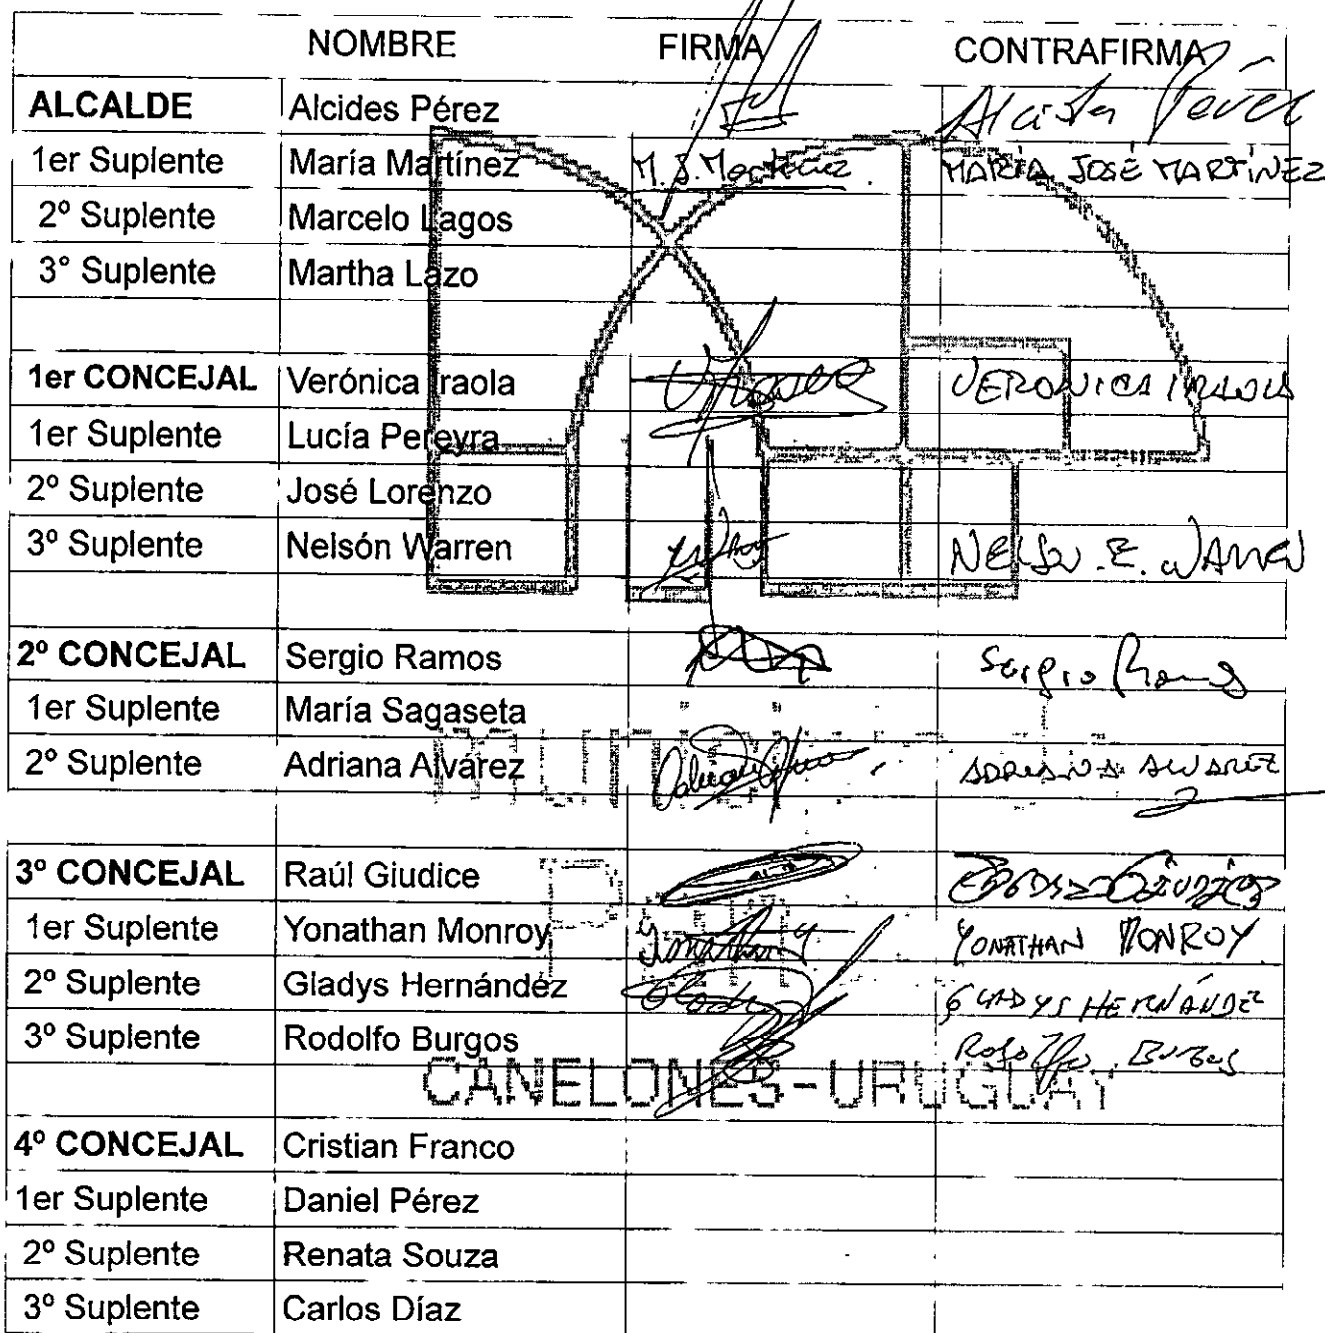 NOMBRE FIRMA CONTRAFIRMA
ALCALDE Alcides Pérez Pérez
1er Suplente María Martínez M. J. Martínez. MARÍA JOSÉ MARTÍNEZ
2º Suplente Marcelo Lagos
3° Suplente Martha Lazo
1er CONCEJAL Verónica Iraola VERONICA IRAOLA
1er Suplente Lucía Pereyra
2º Suplente José Lorenzo
3º Suplente Nelsón Warren NELSON E. WARREN
2º CONCEJAL Sergio Ramos Sergio Ramos
1er Suplente María Sagaseta
2º Suplente Adriana Alvárez ADRIANA ALVAREZ
3º CONCEJAL Raúl Giudice
1er Suplente Yonathan Monroy YONATHAN MONROY
2º Suplente Gladys Hernández GLADYS HERNÁNDEZ
3º Suplente Rodolfo Burgos Rodolfo Burgos
CANELONES-URUGUAY
4º CONCEJAL Cristian Franco
1er Suplente Daniel Pérez
2º Suplente Renata Souza
3º Suplente Carlos Díaz